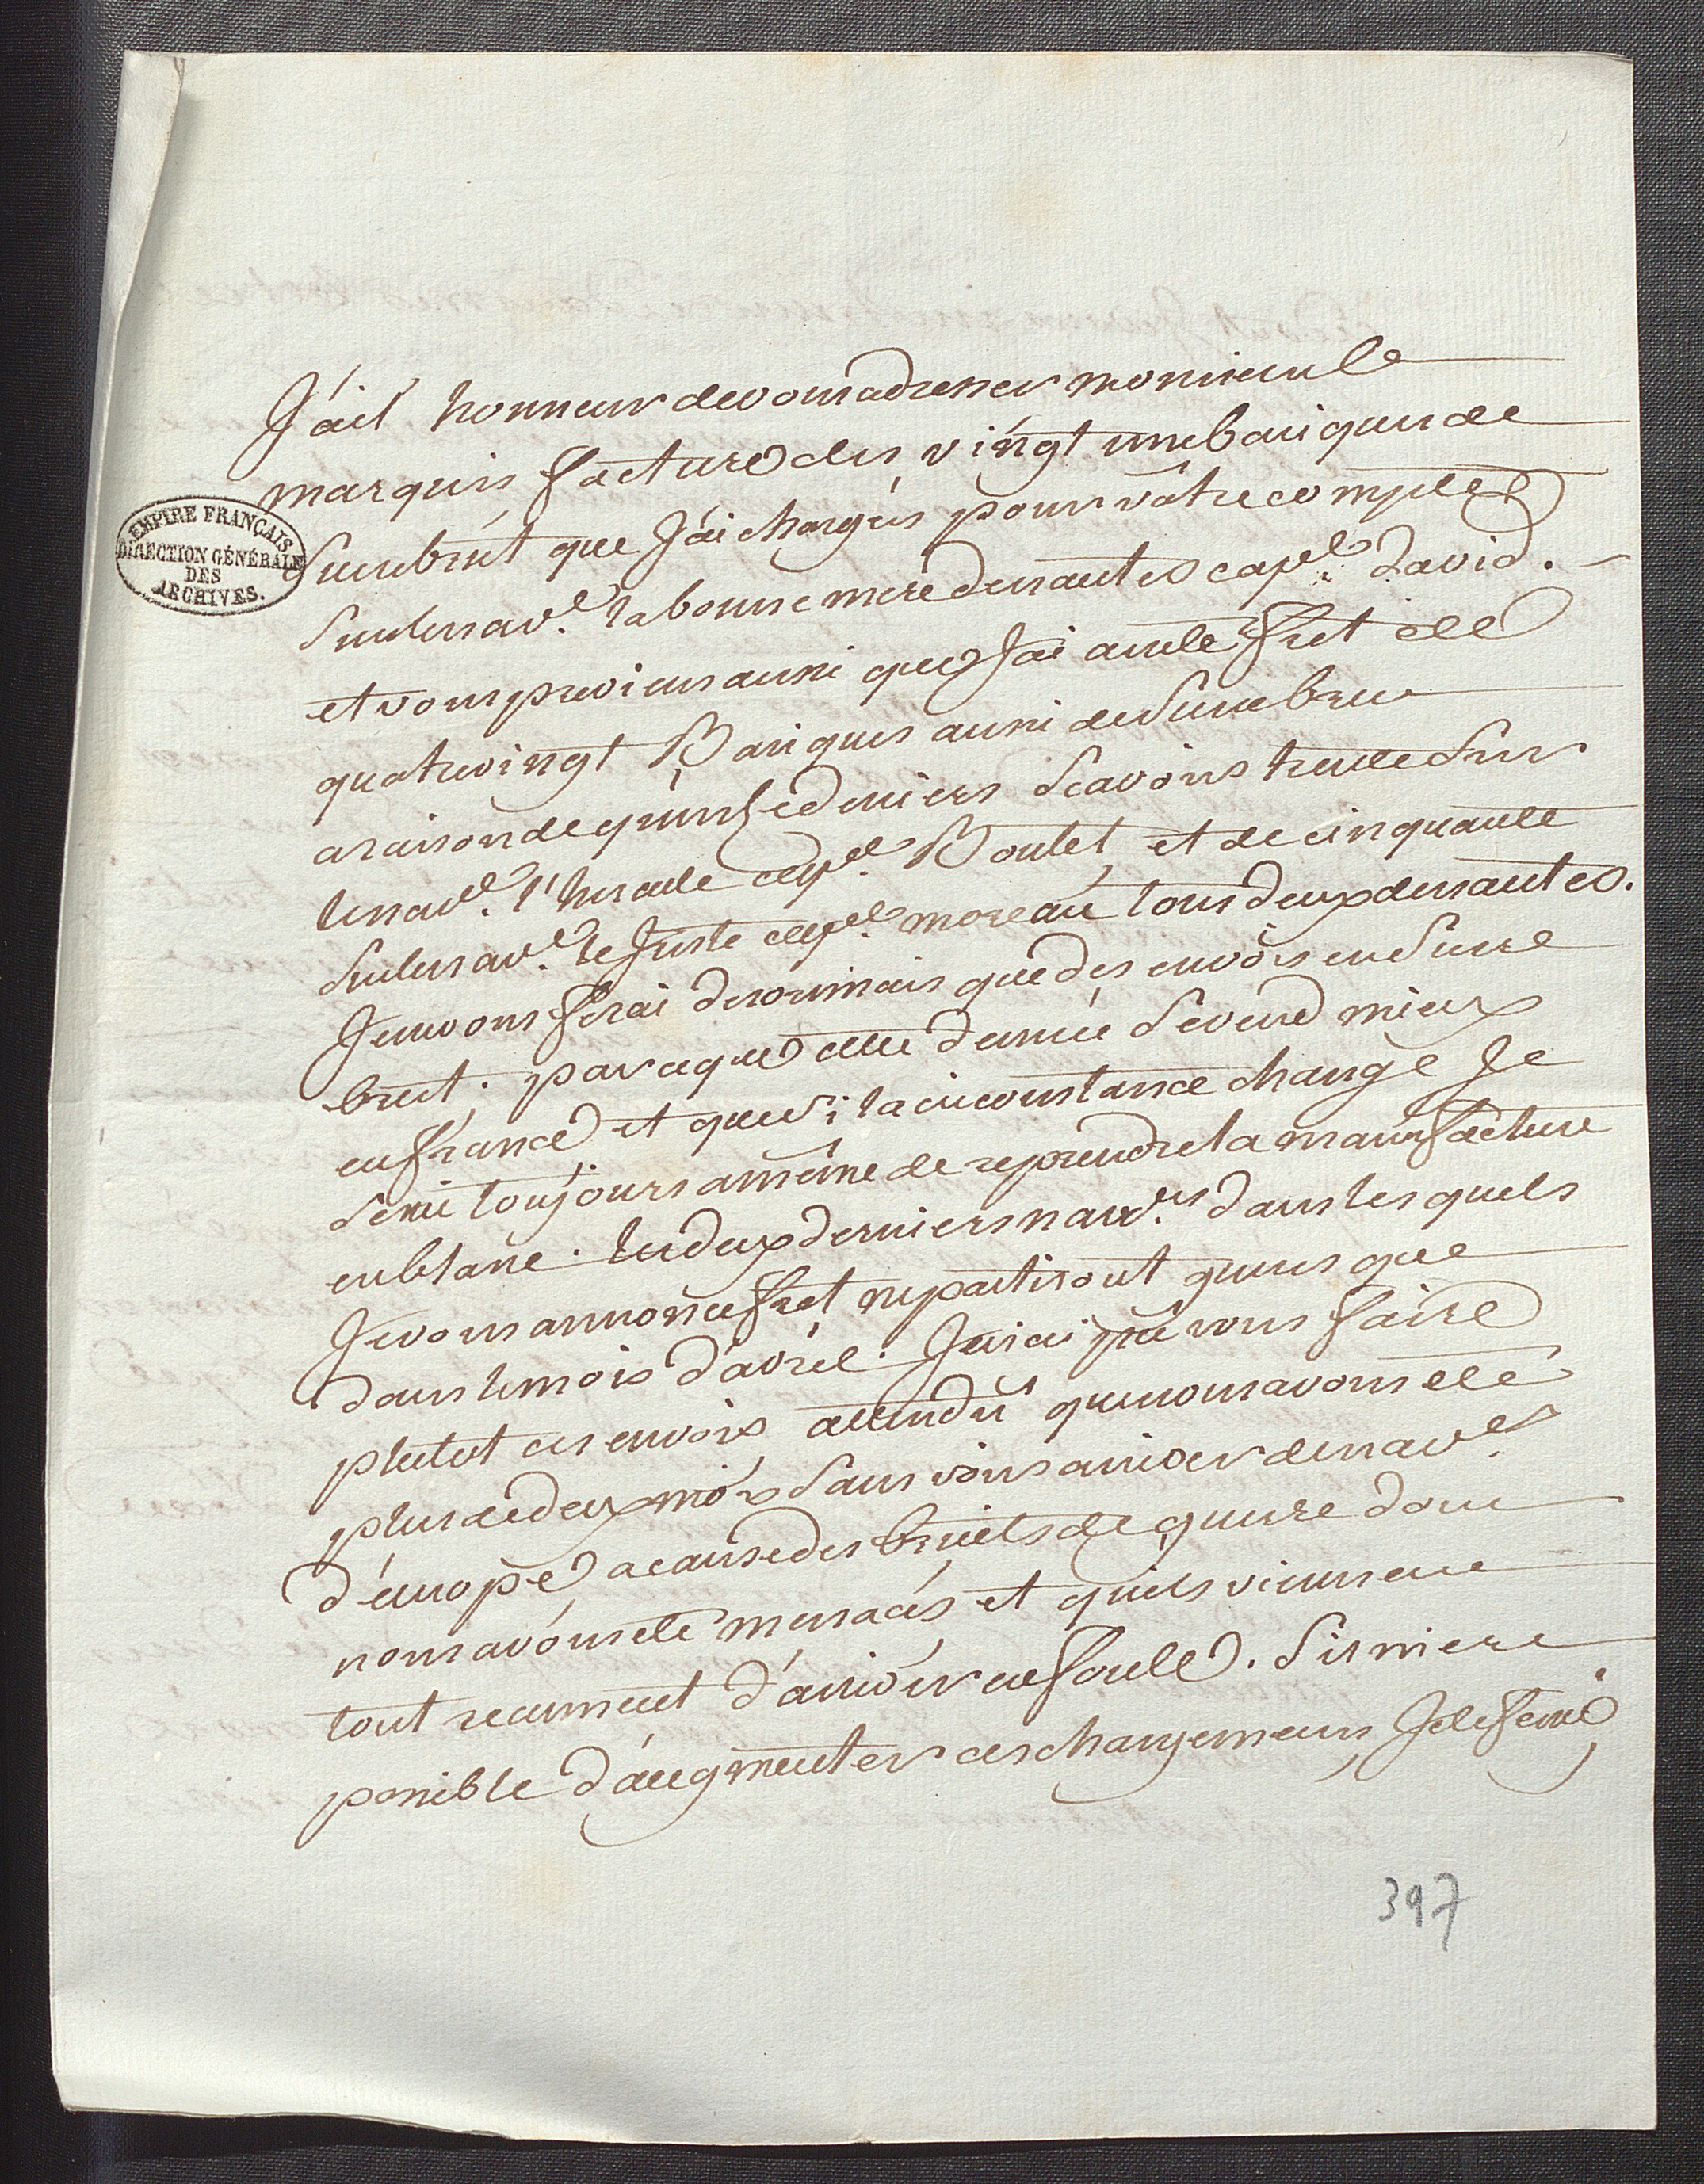 J'ai l'honneur de vous adresser monsieur le
marquis facture des vingt une bariques de
Sucre brut que J'ai chargés pour vôtre compte
Sur le nav.e la bonne mere de nantes cap.e david.
et vous previens aussi que J'ai arreté fret de
quatre vingt Bariques aussi de Sucre brut
a raison de quinze deniers Scavoir trente Sur
le nav.e l'hercule cap.e Boutet et de cinquante
Sur le nav.e le Juste cap.e moreau tous deux de nantes.
Je ne vous ferai desormais que des envois en Sucre
brut. parce que cette denrée Se vend mieux
en france et que si la circonstance change Je
Serai toujours a même de reprendre la manufacture
en blanc. les deux derniers nav.res dans lesquels
Je vous annonce fret ne partiront guerres que
dans le mois d'avril. Je n'ai pû vous faire
plutot ces envois attendu que nous avons eté
plus de deux mois Sans voir arriver de nav.es
d'europe a cause des bruits de guerre dont
nous avons eté menacés et qu'ils viennent
tout recemment d'arriver en foule. S'il m'ere
possible d'augmenter ces chargemens Je le ferai
397
EMPIRE FRANÇAIS.
DIRECTION GÉNÉRALE
DES
ARCHIVES.